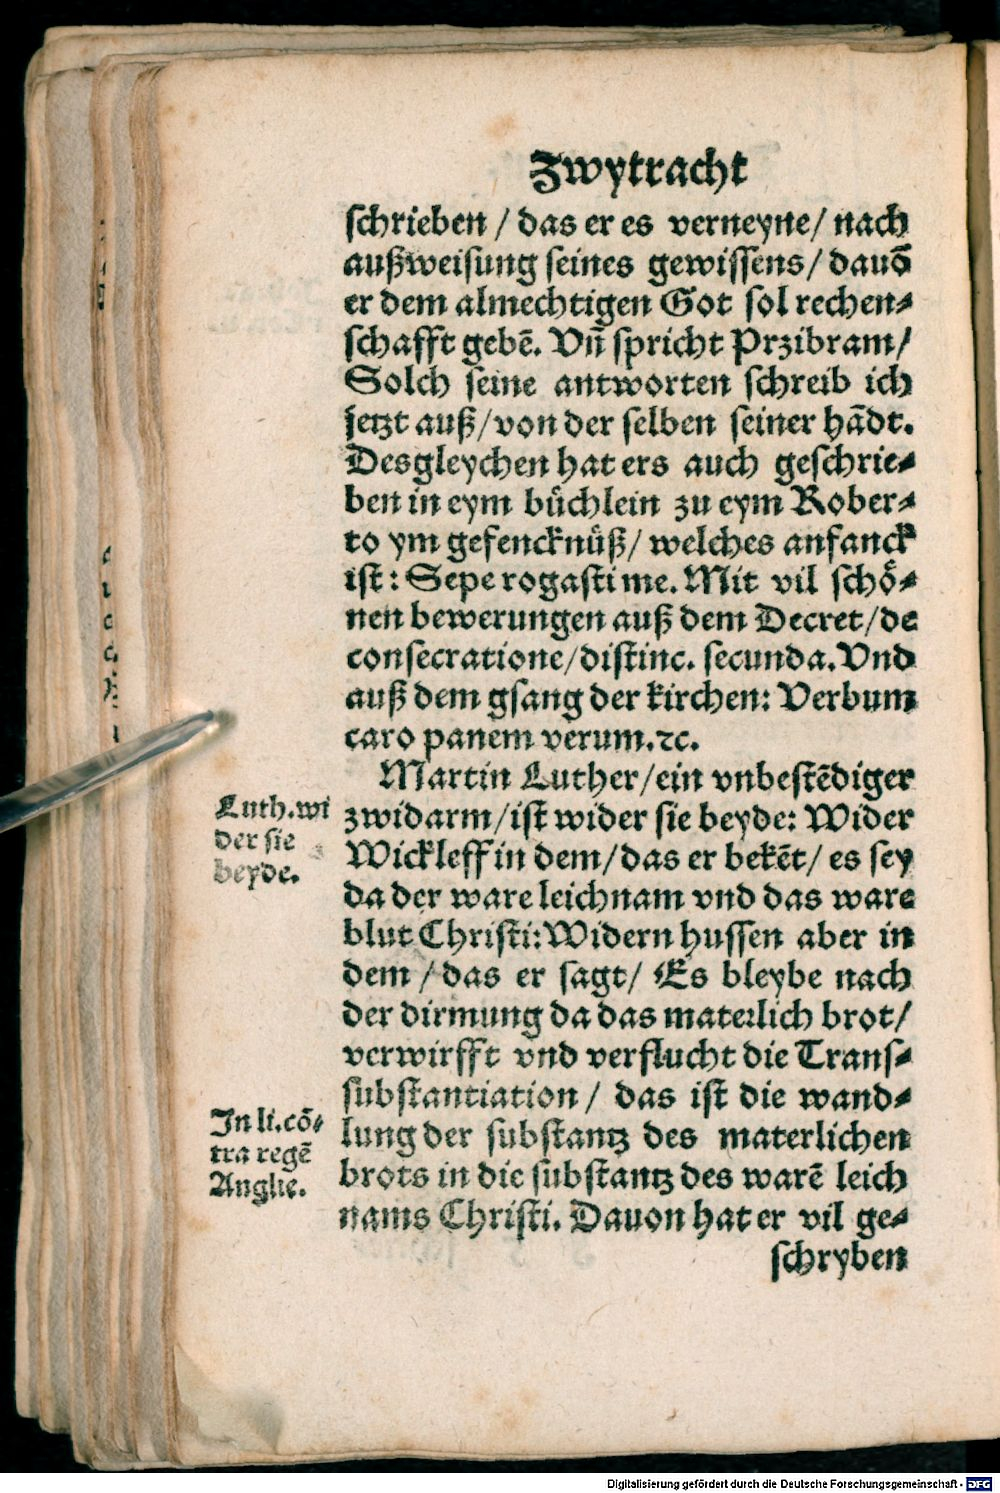 Zwytracht
schrieben / das er es verneyne / nach
außweisung seines gewissens / dauō
er dem almechtigen Got sol rechen⸗
schafft gebē. Vn̄ spricht Przibram /
Solch seine antworten schreib ich
jetzt auß / von der selben seiner hādt.
Desgleychen hat ers auch geschrie⸗
ben in eym bůchlein zu eym Rober⸗
to ym gefencknůß / welches anfanck
ist : Sepe rogasti me. Mit vil schoͤ⸗
nen bewerungen auß dem Decret / de
consecratione / distinc. secunda. Vnd
auß dem gsang der kirchen: Verbum
caro panem verum. ꝛc.
Martin Luther / ein vnbestēdiger
Luth. wi
der sie
beyde.
zwidarm / ist wider sie beyde: Wider
Wickleff in dem / das er bekēt / es sey
da der ware leichnam vnd das ware
blut Christi: Widern hussen aber in
dem / das er sagt / Es bleybe nach
der dirmung da das materlich brot /
verwirfft vnd verflucht die Trans⸗
substantiation / das ist die wand⸗
In li. cō⸗
tra regē
Anglie.
lung der substantz des materlichen
brots in die substantz des warē leich
nams Christi. Dauon hat er vil ge⸗
schryben
Digitalisierung gefördert durch die Deutsche Forschungsgemeinschaft - DFG